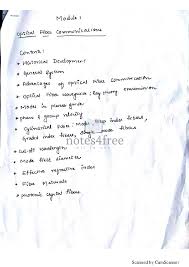 Module: 1
Optical Fiber Communications
Contents:
• Historical Development
• General System
• Advantages of Optical Fiber Communication
• Optical Fiber waveguide: Ray theory transmission
• Modes in planar guide
• phase & group velocity
• Cylindrical Fiber: Mode, Step index fibers,
Graded index fibers, Single mode fibers
notes4free
• Cut-off wavelength
• Mode field diameter
• Effective refractive index
• Fiber Materials
• photonic crystal fibers
Scanned by CamScanner